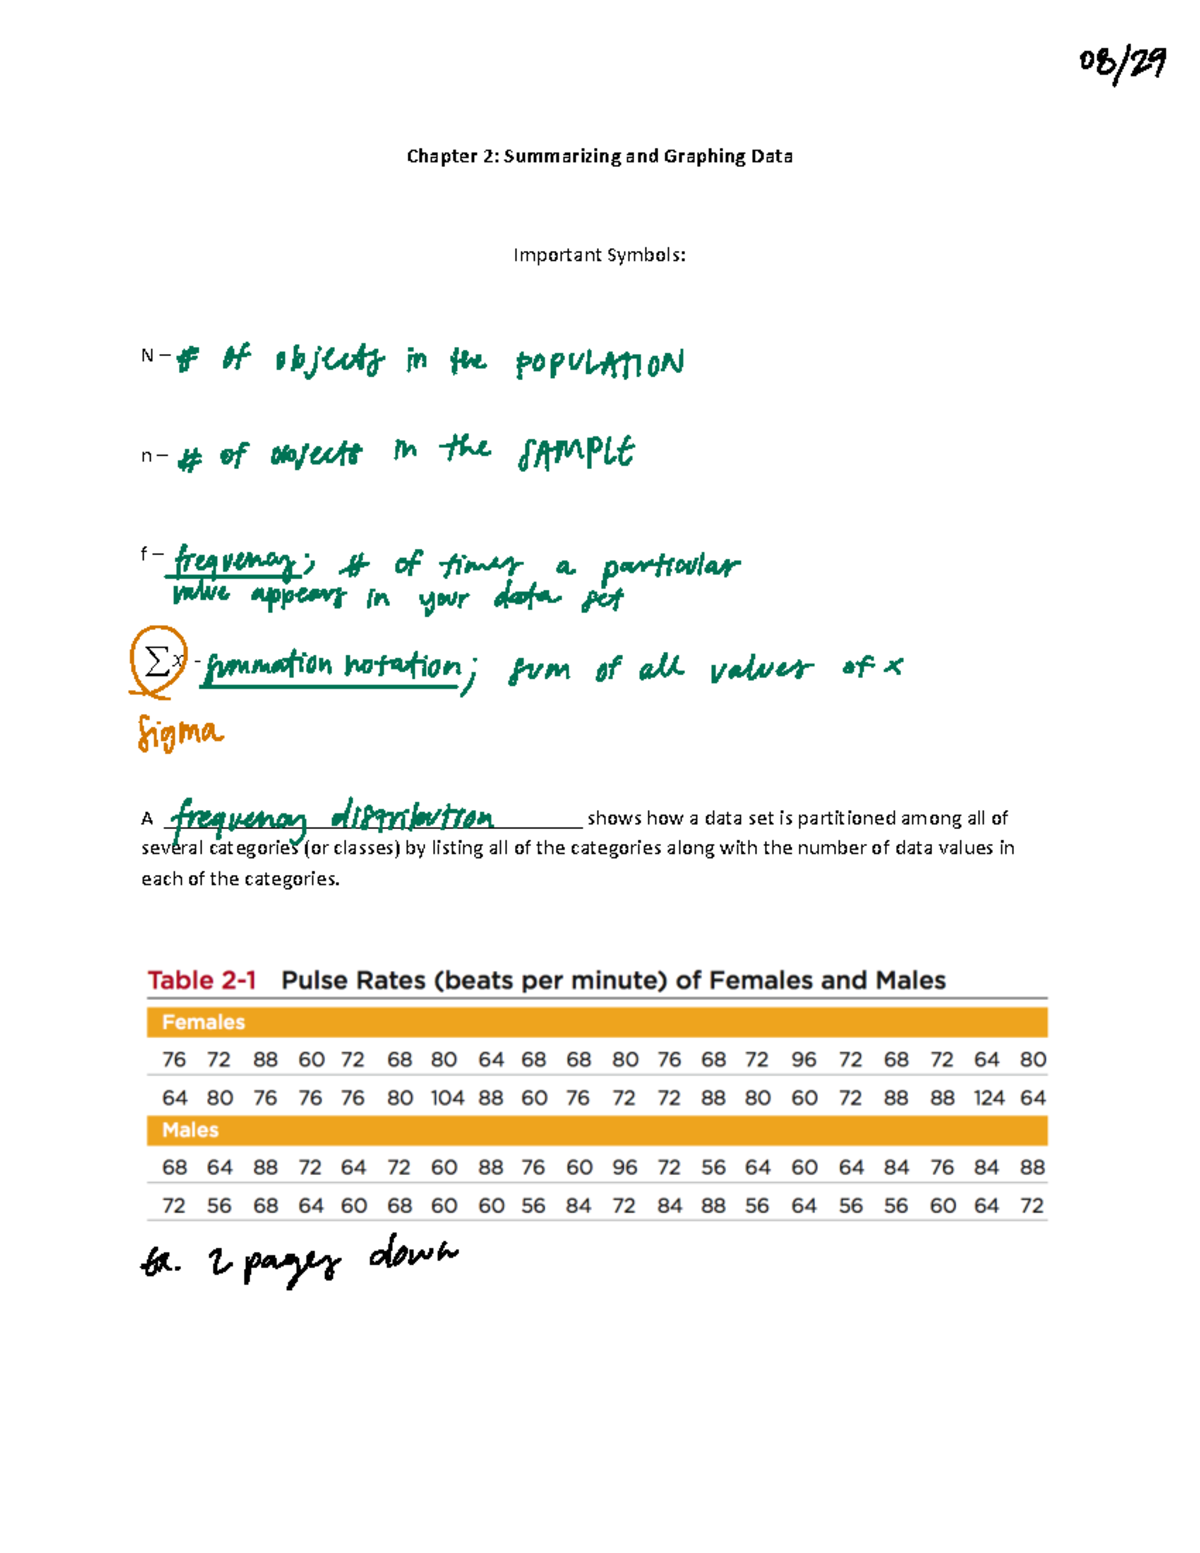 08/29
Chapter 2: Summarizing and Graphing Data
Important Symbols:
N – # of objects in the POPULATION
n – # of objects in the SAMPLE
f – frequency; # of times a particular
value appears in your data set
∑x - summation notation; sum of all values of x
Sigma
A frequency distribution shows how a data set is partitioned among all of
several categories (or classes) by listing all of the categories along with the number of data values in
each of the categories.
Table 2-1 Pulse Rates (beats per minute) of Females and Males
Females
76 72 88 60 72 68 80 64 68 68 80 76 68 72 96 72 68 72 64 80
64 80 76 76 76 80 104 88 60 76 72 72 88 80 60 72 88 88 124 64
Males
68 64 88 72 64 72 60 88 76 60 96 72 56 64 60 64 84 76 84 88
72 56 68 64 60 68 60 60 56 84 72 84 88 56 64 56 56 60 64 72
Ex. 2 pages down